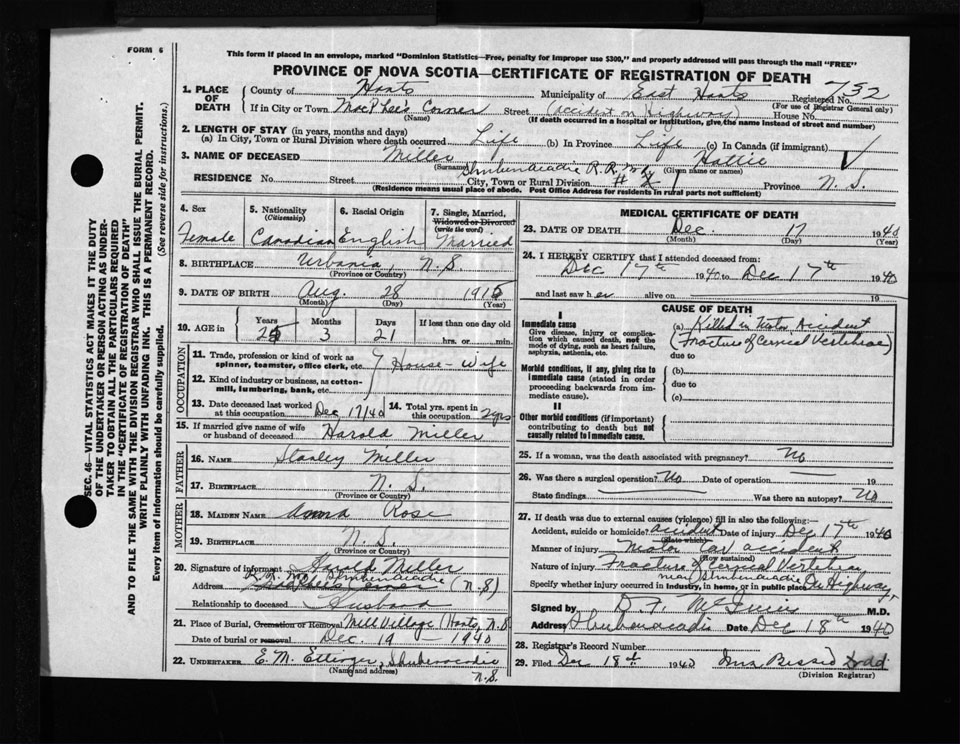 FORM 6
This form if placed in an envelope, marked "Dominion Statistics—Free, penalty for improper use $300," and properly addressed will pass through the mail "FREE"
PROVINCE OF NOVA SCOTIA—CERTIFICATE OF REGISTRATION OF DEATH
1. PLACE OF DEATH County of Hants Municipality of East Hants Registered No. 732
(For use of Registrar General only)
If in City or Town MacPhee's Corner Street (accident on Highway) House No.
(Name) (If death occurred in a hospital or institution, give the name instead of street and number)
2. LENGTH OF STAY (in years, months and days)
(a) In City, Town or Rural Division where death occurred Life (b) In Province Life (c) In Canada (if immigrant)
3. NAME OF DECEASED Miller Hattie
(Surname) (Given name or names)
RESIDENCE No. Street City, Town or Rural Division Shubenacadie R.R. Province N.S.
(Residence means usual place of abode. Post Office Address for residents in rural parts not sufficient)
4. Sex Female
5. Nationality (Citizenship) Canadian
6. Racial Origin English
7. Single, Married, Widowed or Divorced (write the word) Married
8. BIRTHPLACE Urbania, N.S.
(Province or Country)
9. DATE OF BIRTH Aug 28 1915
(Month) (Day) (Year)
10. AGE in Years 25 Months 3 Days 21 If less than one day old hrs. or min.
OCCUPATION
11. Trade, profession or kind of work as spinner, teamster, office clerk, etc. House-Wife
12. Kind of industry or business, as cotton-mill, lumbering, bank, etc.
13. Date deceased last worked at this occupation Dec 17/40 14. Total yrs. spent in this occupation 2 yrs
15. If married give name of wife or husband of deceased Harold Miller
FATHER
16. NAME Stanley Miller
17. BIRTHPLACE N.S.
(Province or Country)
MOTHER
18. MAIDEN NAME Anna Rose
19. BIRTHPLACE N.S.
(Province or Country)
20. Signature of informant Harold Miller
Address Shubenacadie (N.S)
Relationship to deceased Husband
21. Place of Burial, Cremation or Removal Mill Village (Hants, N.S
Date of burial or removal Dec 19 1940
22. UNDERTAKER E. M. Ettinger, Shubenacadie
(Name and address) N.S.
MEDICAL CERTIFICATE OF DEATH
23. DATE OF DEATH Dec. 17 1940
(Month) (Day) (Year)
24. I HEREBY CERTIFY that I attended deceased from:
Dec 17th 1940 to Dec 17th 1940
and last saw her alive on 19
CAUSE OF DEATH
I
Immediate cause
Give disease, injury or complication which caused death, not the mode of dying, such as heart failure, asphyxia, asthenia, etc.
(a) Killed in Motor Accident
(Fracture of Cervical Vertebrae)
due to
Morbid conditions, if any, giving rise to immediate cause (stated in order proceeding backwards from immediate cause).
(b)
due to
(c)
II
Other morbid conditions (if important) contributing to death but not causally related to immediate cause.
25. If a woman, was the death associated with pregnancy? No
26. Was there a surgical operation? No Date of operation 19
State findings Was there an autopsy? No
27. If death was due to external causes (violence) fill in also the following:—
Accident, suicide or homicide? accident Date of injury Dec 17th 1940
(State which)
Manner of injury Motor Car accident
(How sustained)
Nature of injury Fracture of Cervical Vertebrae
near Shubenacadie
Specify whether injury occurred in industry, in home, or in public place On Highway
Signed by M.D.
Address Shubenacadie Date Dec 18th 1940
28. Registrar's Record Number
29. Filed Dec 18th 1940 Dodd
(Division Registrar)
SEC. 46—VITAL STATISTICS ACT MAKES IT THE DUTY
OF THE UNDERTAKER OR PERSON ACTING AS UNDER-
TAKER TO OBTAIN ALL THE PARTICULARS REQUIRED
IN THE "CERTIFICATE OF REGISTRATION OF DEATH"
AND TO FILE THE SAME WITH THE DIVISION REGISTRAR WHO SHALL ISSUE THE BURIAL PERMIT.
WRITE PLAINLY WITH UNFADING INK. THIS IS A PERMANENT RECORD.
Every item of information should be carefully supplied. (See reverse side for instructions).